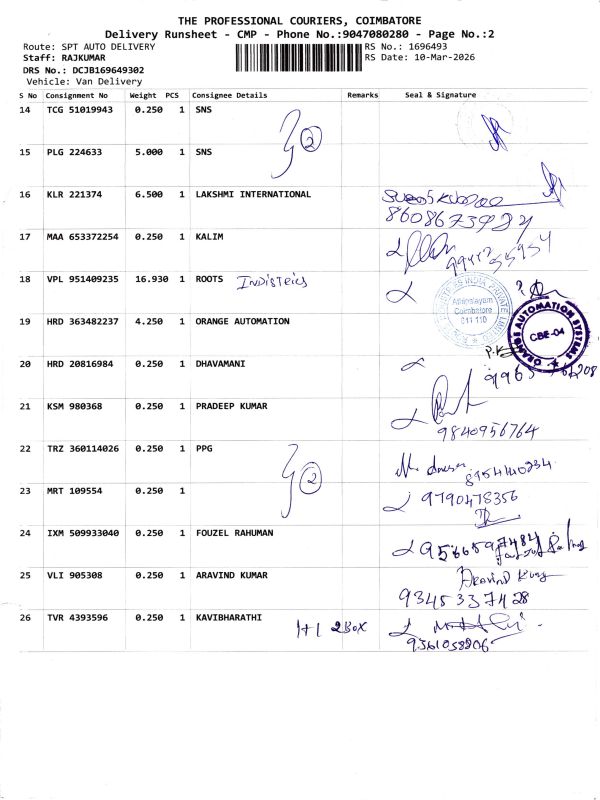 THE PROFESSIONAL COURIERS, COIMBATORE
Delivery Runsheet - CMP - Phone No.:9047080280 - Page No.:2
Route: SPT AUTO DELIVERY
RS No.: 1696493
Staff: RAJKUMAR
RS Date: 10-Mar-2026
DRS No.: DCJB169649302
Vehicle: Van Delivery
S No Consignment No Weight PCS Consignee Details Remarks Seal & Signature
14 TCG 51019943 0.250 1 SNS
2
15 PLG 224633 5.000 1 SNS
16 KLR 221374 6.500 1 LAKSHMI INTERNATIONAL
8608673924
17 MAA 653372254 0.250 1 KALIM
18 VPL 951409235 16.930 1 ROOTS
Athipalayam
Coimbatore
19 HRD 363482237 4.250 1 ORANGE AUTOMATION
ORANGE AUTOMATION SYSTEMS
CBE-04
20 HRD 20816984 0.250 1 DHAVAMANI
21 KSM 980368 0.250 1 PRADEEP KUMAR
9840956764
22 TRZ 360114026 0.250 1 PPG
2
23 MRT 109554 0.250 1
9790478356
24 IXM 509933040 0.250 1 FOUZEL RAHUMAN
25 VLI 905308 0.250 1 ARAVIND KUMAR
Aravind
9345337428
26 TVR 4393596 0.250 1 KAVIBHARATHI
1+1 2Box